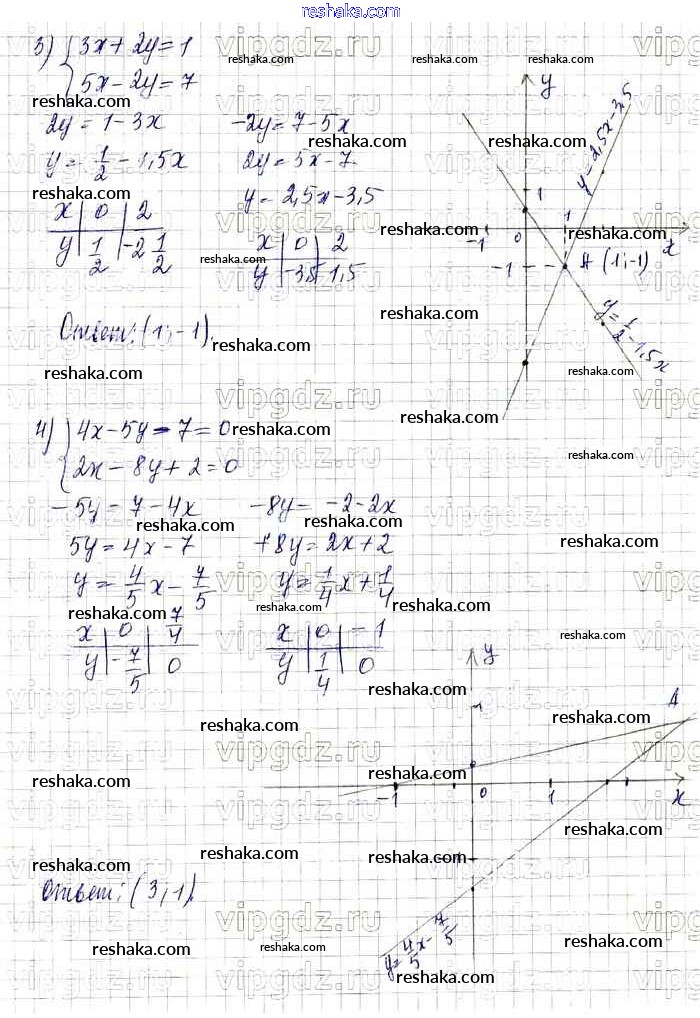 reshaka.com
3) { 3x + 2y = 1
5x - 2y = 7
2y = 1 - 3x
-2y = 7 - 5x
y = 1/2 - 1,5x
2y = 5x - 7
y = 2,5x - 3,5
x | 0 | 2
y | 1/2 | -2 1/2
x | 0 | 2
y | -3,5 | 1,5
Ответ: (1; -1).
y
y = 2,5x - 3,5
1
-1 0 1 x
-1
A (1; -1)
y = 1/2 - 1,5x
4) { 4x - 5y - 7 = 0
2x - 8y + 2 = 0
-5y = 7 - 4x
-8y = -2 - 2x
5y = 4x - 7
+8y = 2x + 2
y = 4/5 x - 7/5
y = 1/4 x + 1/4
x | 0 | 7/4
y | -7/5 | 0
x | 0 | -1
y | 1/4 | 0
y
1
A
-1 0 1 x
-1
y = 4/5 x - 7/5
Ответ: (3; 1).
vipgdz.ru
reshaka.com